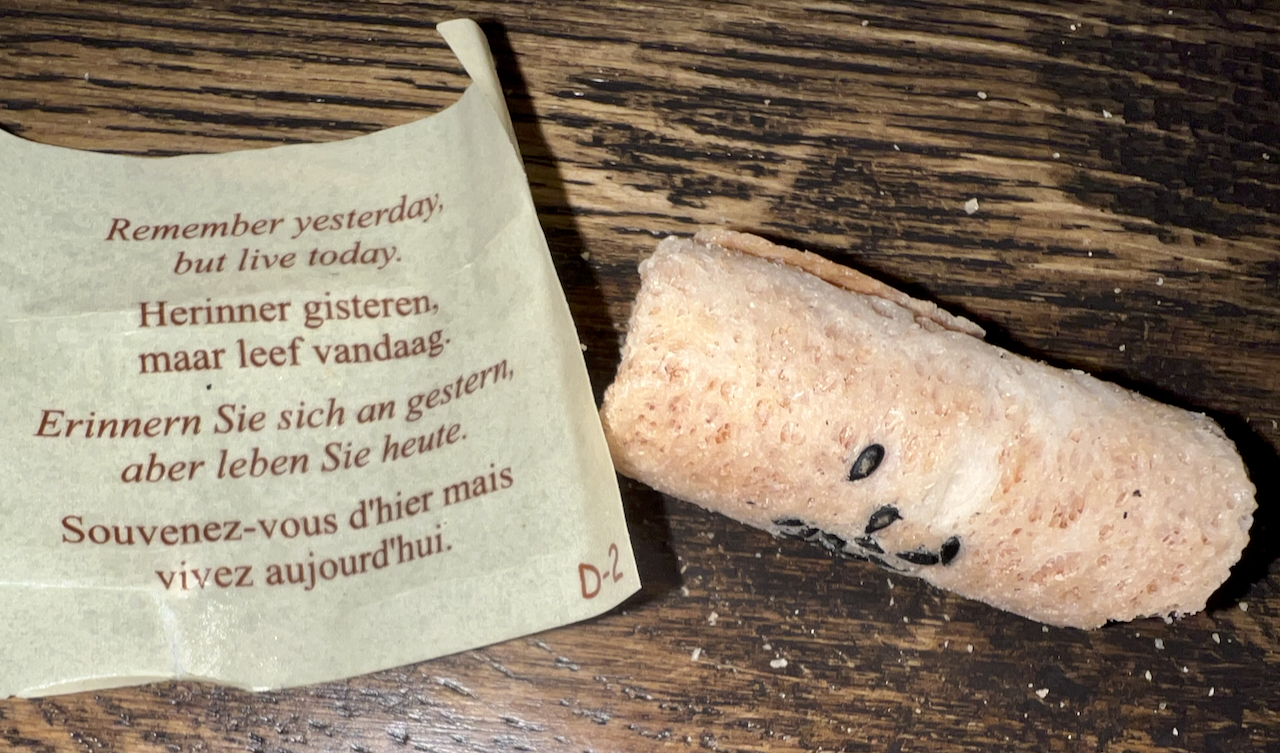 Remember yesterday,
but live today.
Herinner gisteren,
maar leef vandaag.
Erinnern Sie sich an gestern,
aber leben Sie heute.
Souvenez-vous d'hier mais
vivez aujourd'hui.
D-2